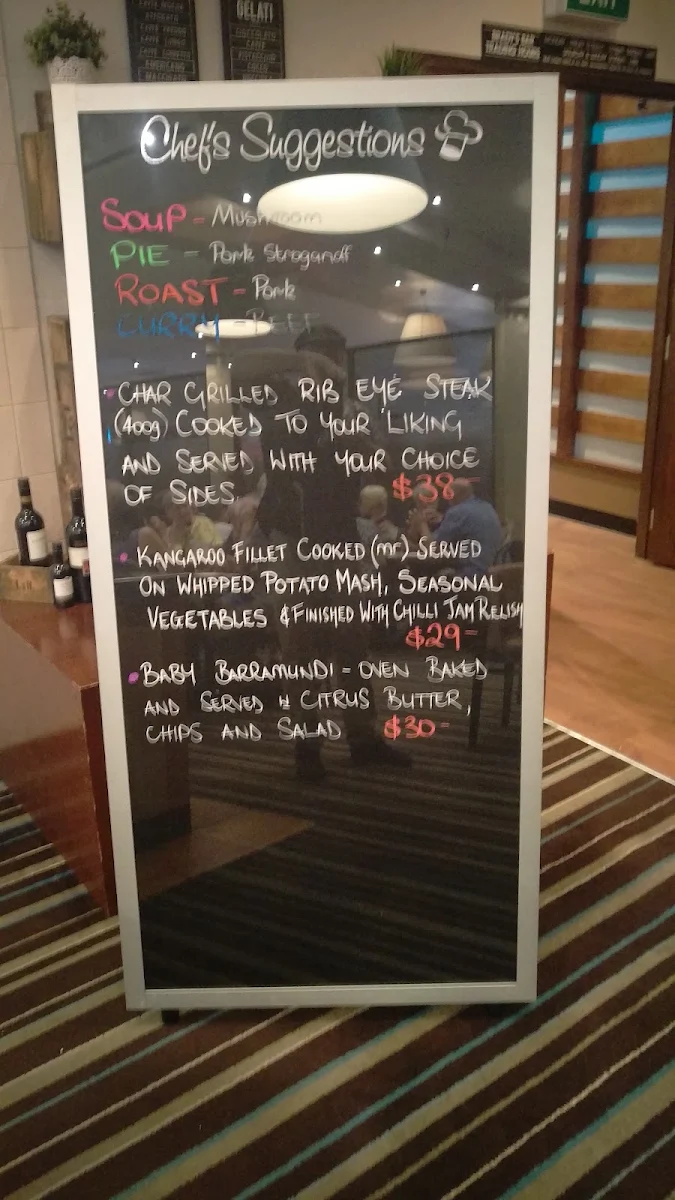 GELATI
Chef's Suggestions
SOUP - Mushroom
PIE - Pork Stroganoff
ROAST - Pork
CURRY - BEEF
CHAR GRILLED RIB EYE STEAK
(400g) COOKED TO YOUR LIKING
AND SERVED WITH YOUR CHOICE
OF SIDES. $38-
KANGAROO FILLET COOKED (mr) SERVED
ON WHIPPED POTATO MASH, SEASONAL
VEGETABLES & FINISHED WITH CHILLI JAM RELISH
$29-
BABY BARRAMUNDI - OVEN BAKED
AND SERVED W CITRUS BUTTER,
CHIPS AND SALAD $30-